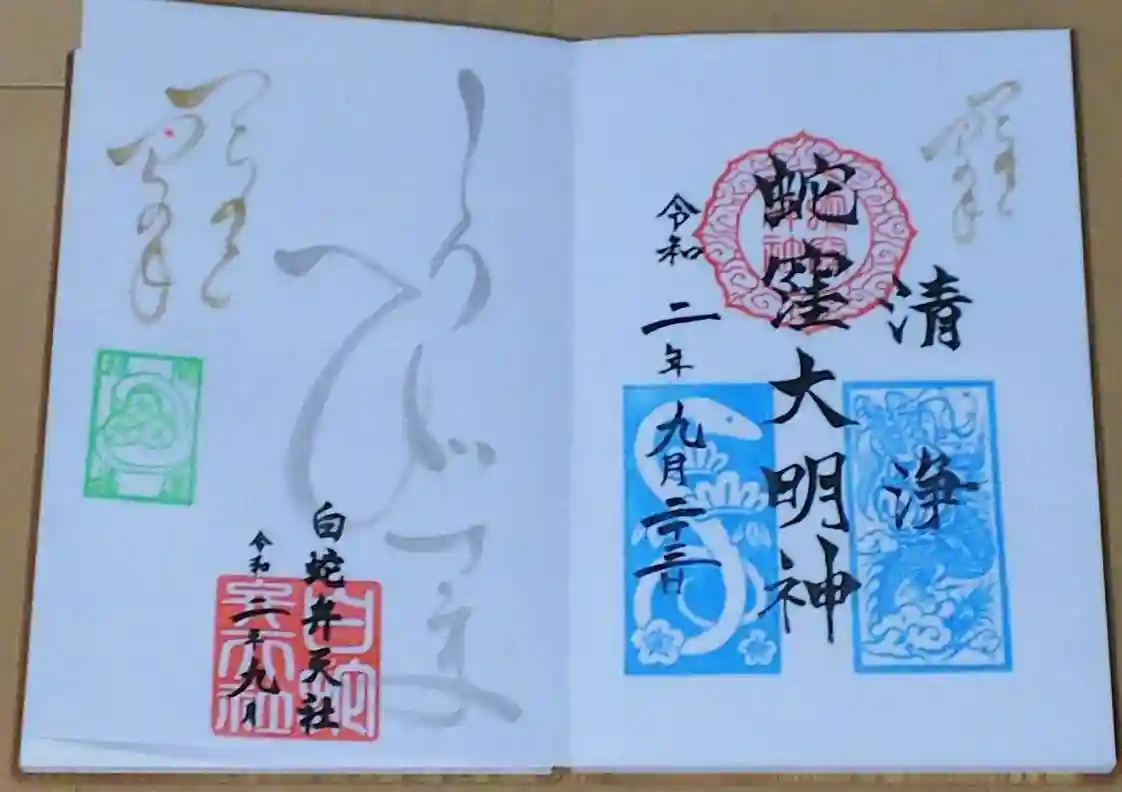 清浄
蛇窪大明神
令和二年九月二十三日
しろへびさま
白蛇弁天社
令和二年九月
白蛇
弁天社